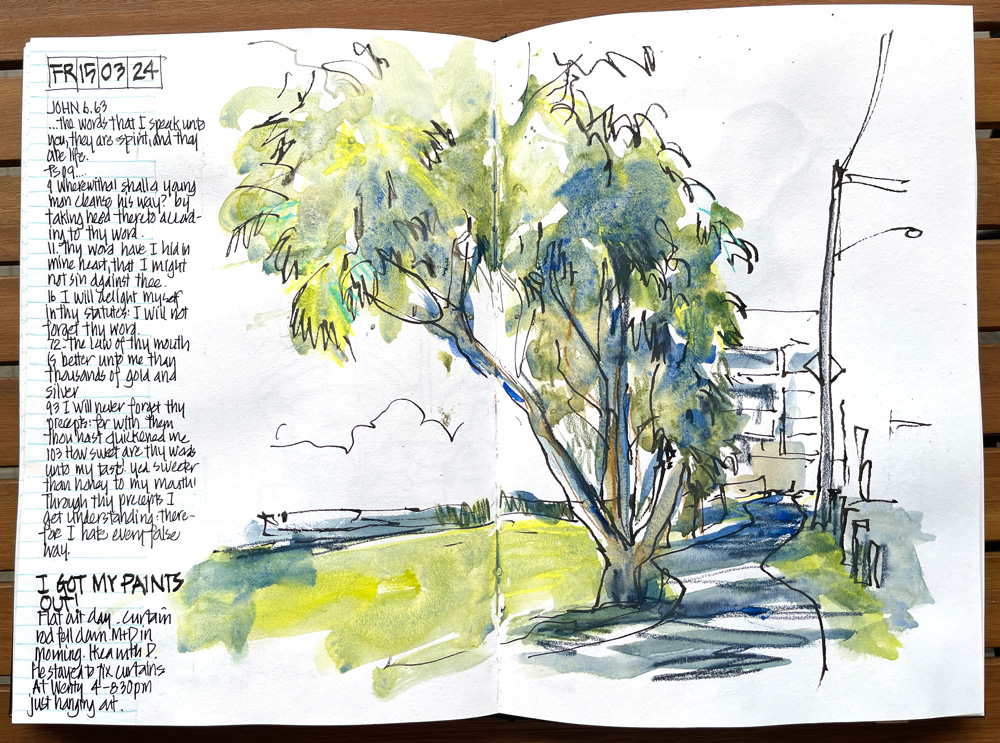 FR 15 03 24
JOHN 6.63
...the words that I speak unto
you, they are spirit, and they
are life.
4 Wherewithal shall a young
man cleanse his way? by
taking heed thereto accord-
ing to thy word.
11. Thy word have I hid in
mine heart, that I might
not sin against thee.
16 I will delight myself
in thy statutes: I will not
forget thy word.
72 the law of thy mouth
is better unto me than
thousands of gold and
silver
93 I will never forget thy
precepts: for with them
thou hast quickened me
103 How sweet are thy words
unto my taste! yea sweeter
than honey to my mouth!
Through thy precepts I
get understanding: there-
fore I hate every false
way.
I GOT MY PAINTS
OUT!
Flat out day. curtain
rod fell down. M+D in
morning. with D.
He stayed to fix curtains
At Wenty 4-830pm
just hanging out.